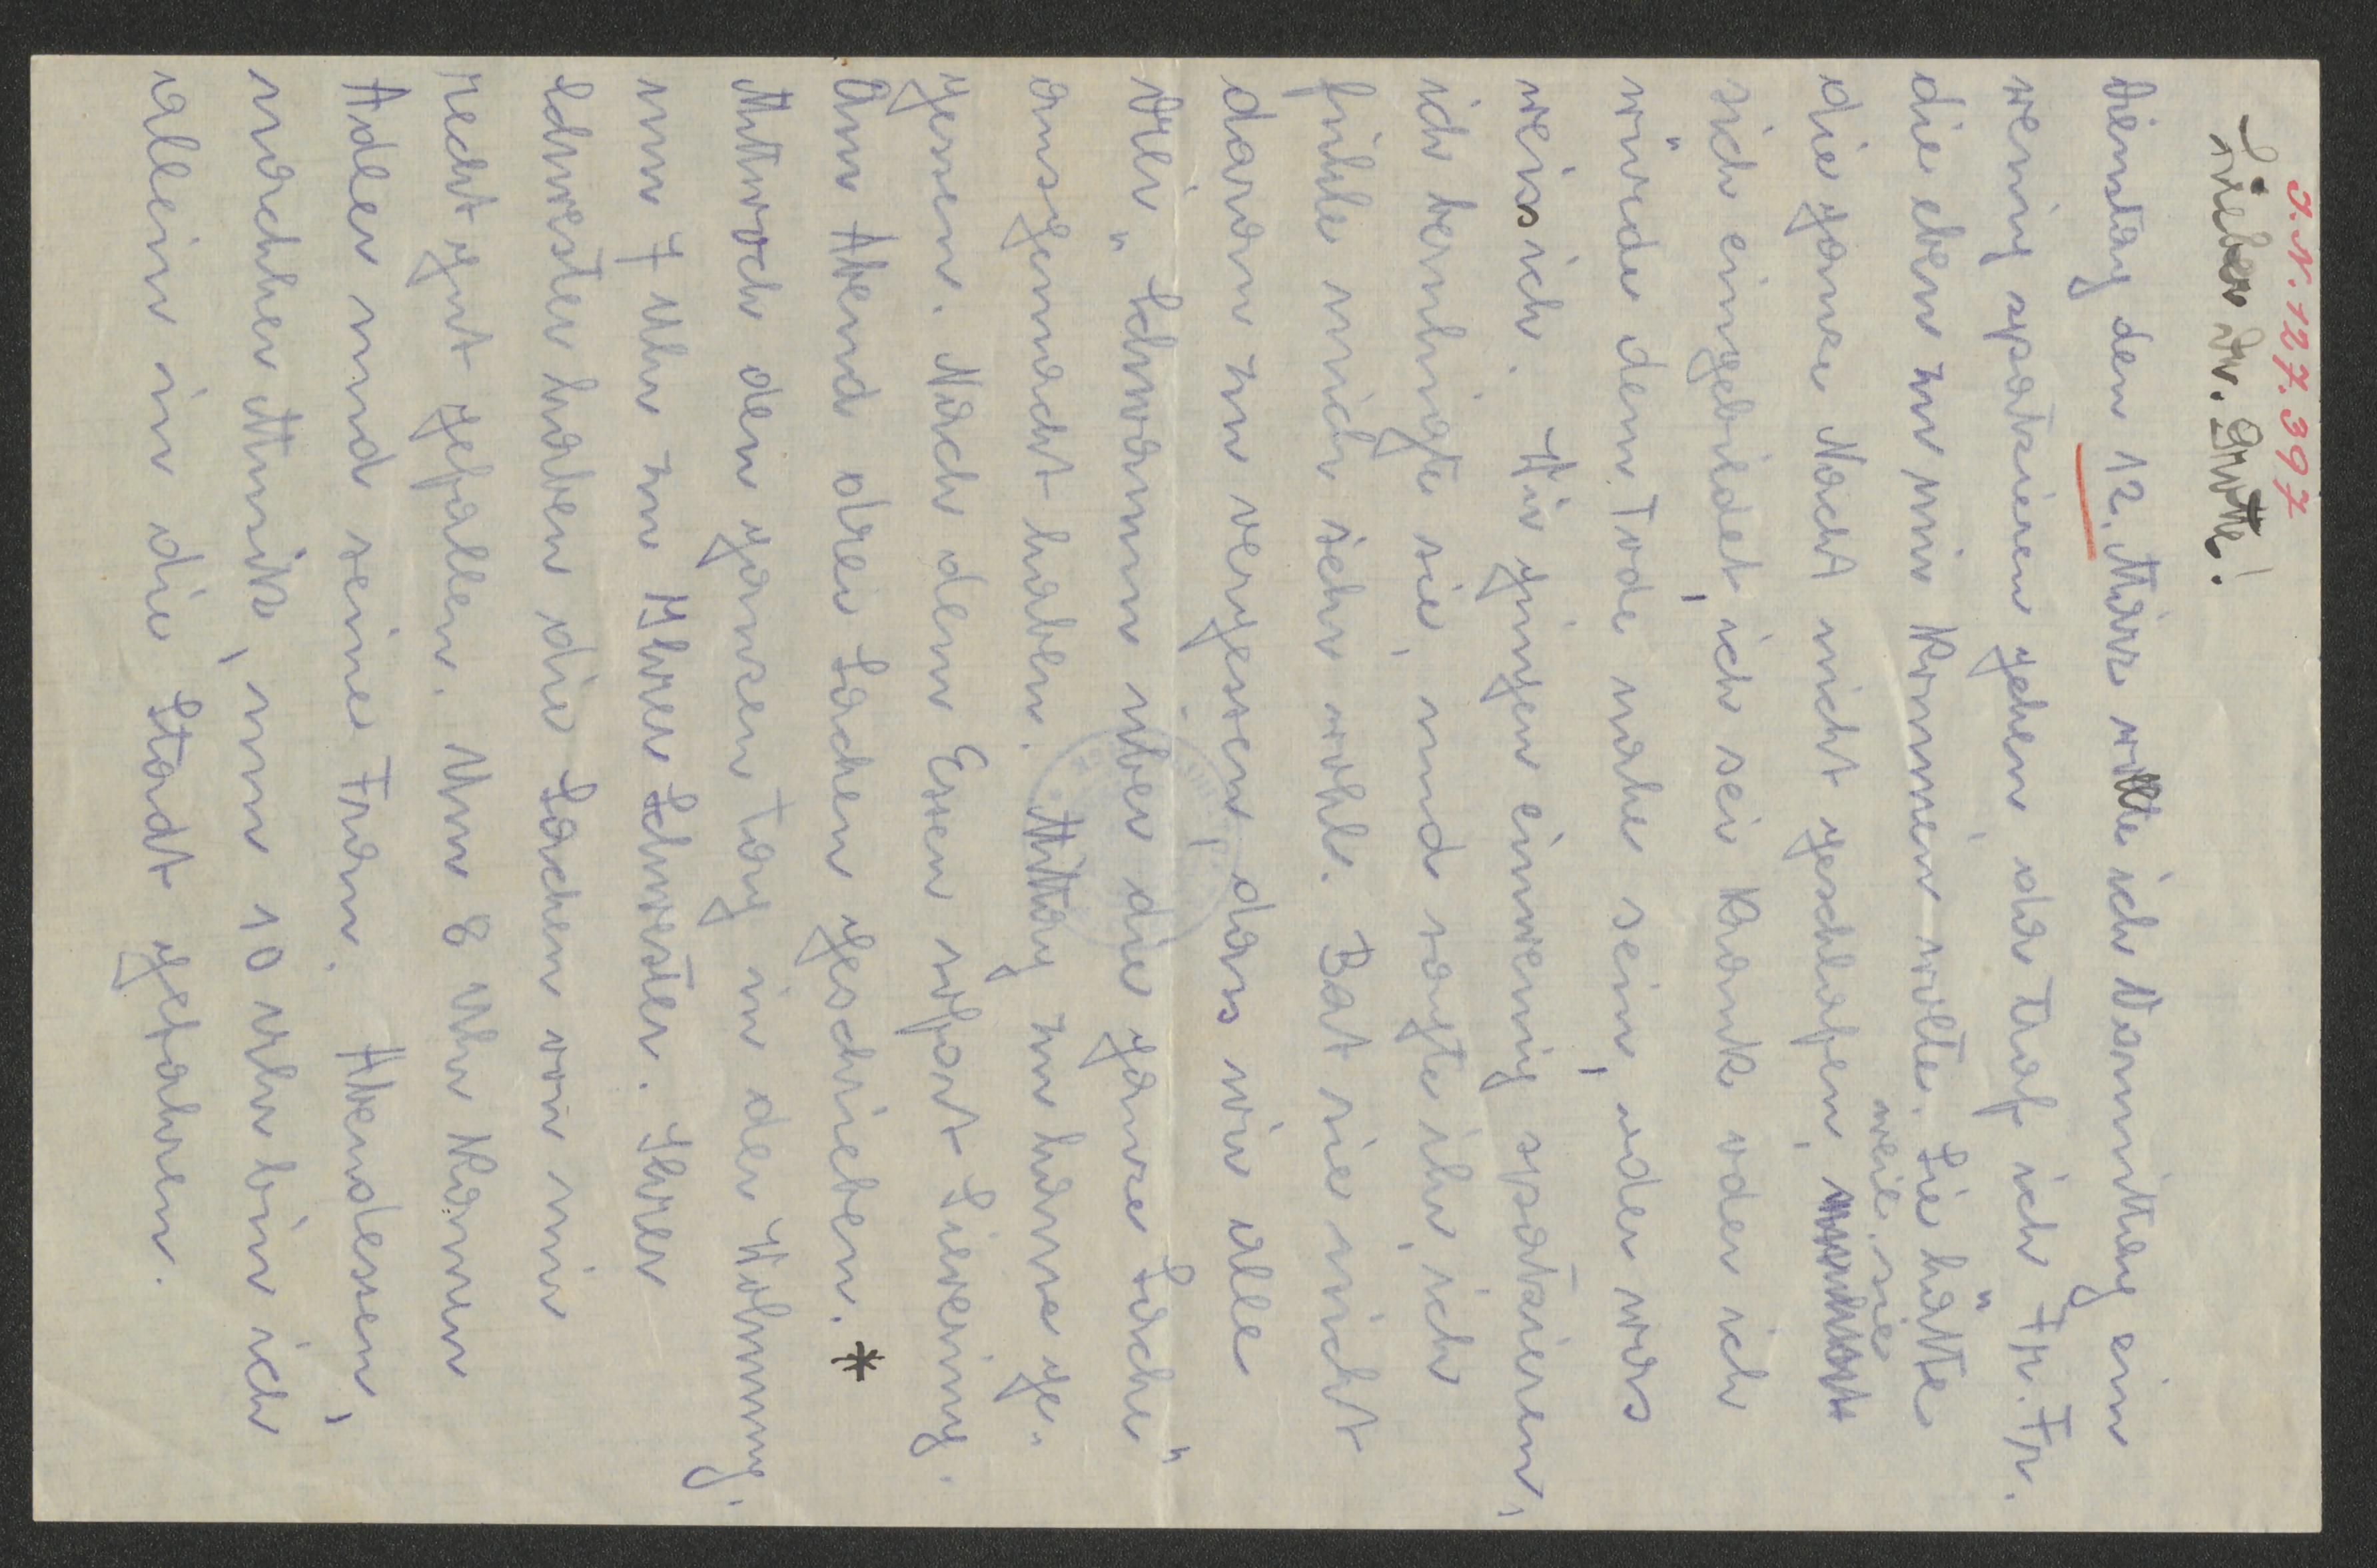 J.N. 127.397
Lieber Dr. Grotte!
Dienstag den 12. März wollte ich Vormittag ein
wenig spatzieren gehen da traf ich Fr. Fr.
die eben zu mir kommen wollte. Sie hätte
die ganze Nacht nicht geschlafen, weil sie
sich eingebildet, ich sei krank oder ich
würde dem Tode nahe sein, oder was
weiss ich. Wir gingen einwenig spatzieren,
ich beruhigte sie, und sagte ihr, ich
fühle mich sehr wohl. Bat sie nicht
daran zu vergessen, dass wir alle
drei „Schwamm über die ganze Sache"
ausgemacht haben. Mittag zu hause ge-
gessen. Nach dem Essen sofort Lieveing.
Am Abend drei Sachen geschrieben. *
Mittwoch den ganzen Tag in der Wohnung,
um 7 Uhr zu Ihrer Schwester. Ihrer
Schwester haben die Sachen von mir
recht gut gefallen. Um 8 Uhr kamen
Adler und seine Frau. Abendessen,
nachher Musik, um 10 Uhr bin ich
allein in die Stadt gefahren.